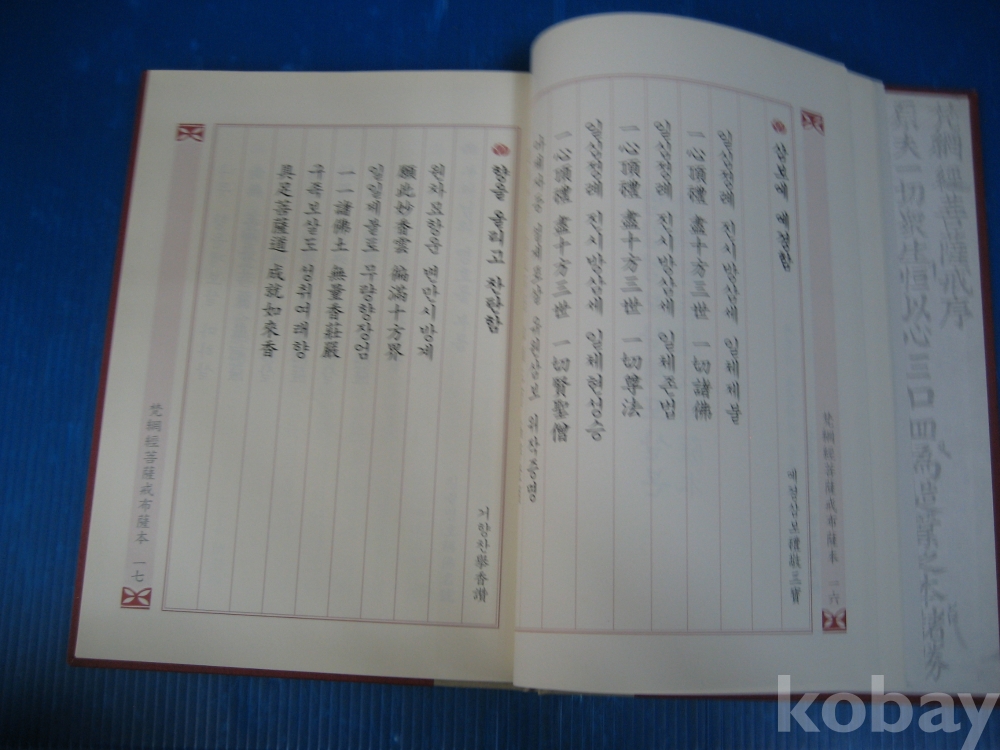 삼보에 예경함
예경삼보禮敬三寶
일심정례 진시방삼세 일체제불
一心頂禮 盡十方三世 一切諸佛
일심정례 진시방삼세 일체존법
一心頂禮 盡十方三世 一切尊法
일심정례 진시방삼세 일체현성승
一心頂禮 盡十方三世 一切賢聖僧
梵網經菩薩戒布薩本 一六
향을 올리고 찬탄함
거향찬擧香讚
원차묘향운 변만시방계
願此妙香雲 徧滿十方界
일일제불토 무량향장엄
一一諸佛土 無量香莊嚴
구족보살도 성취여래향
具足菩薩道 成就如來香
梵網經菩薩戒布薩本 一七
梵網經菩薩戒序
夫一切衆生恒以心三口四
kobay